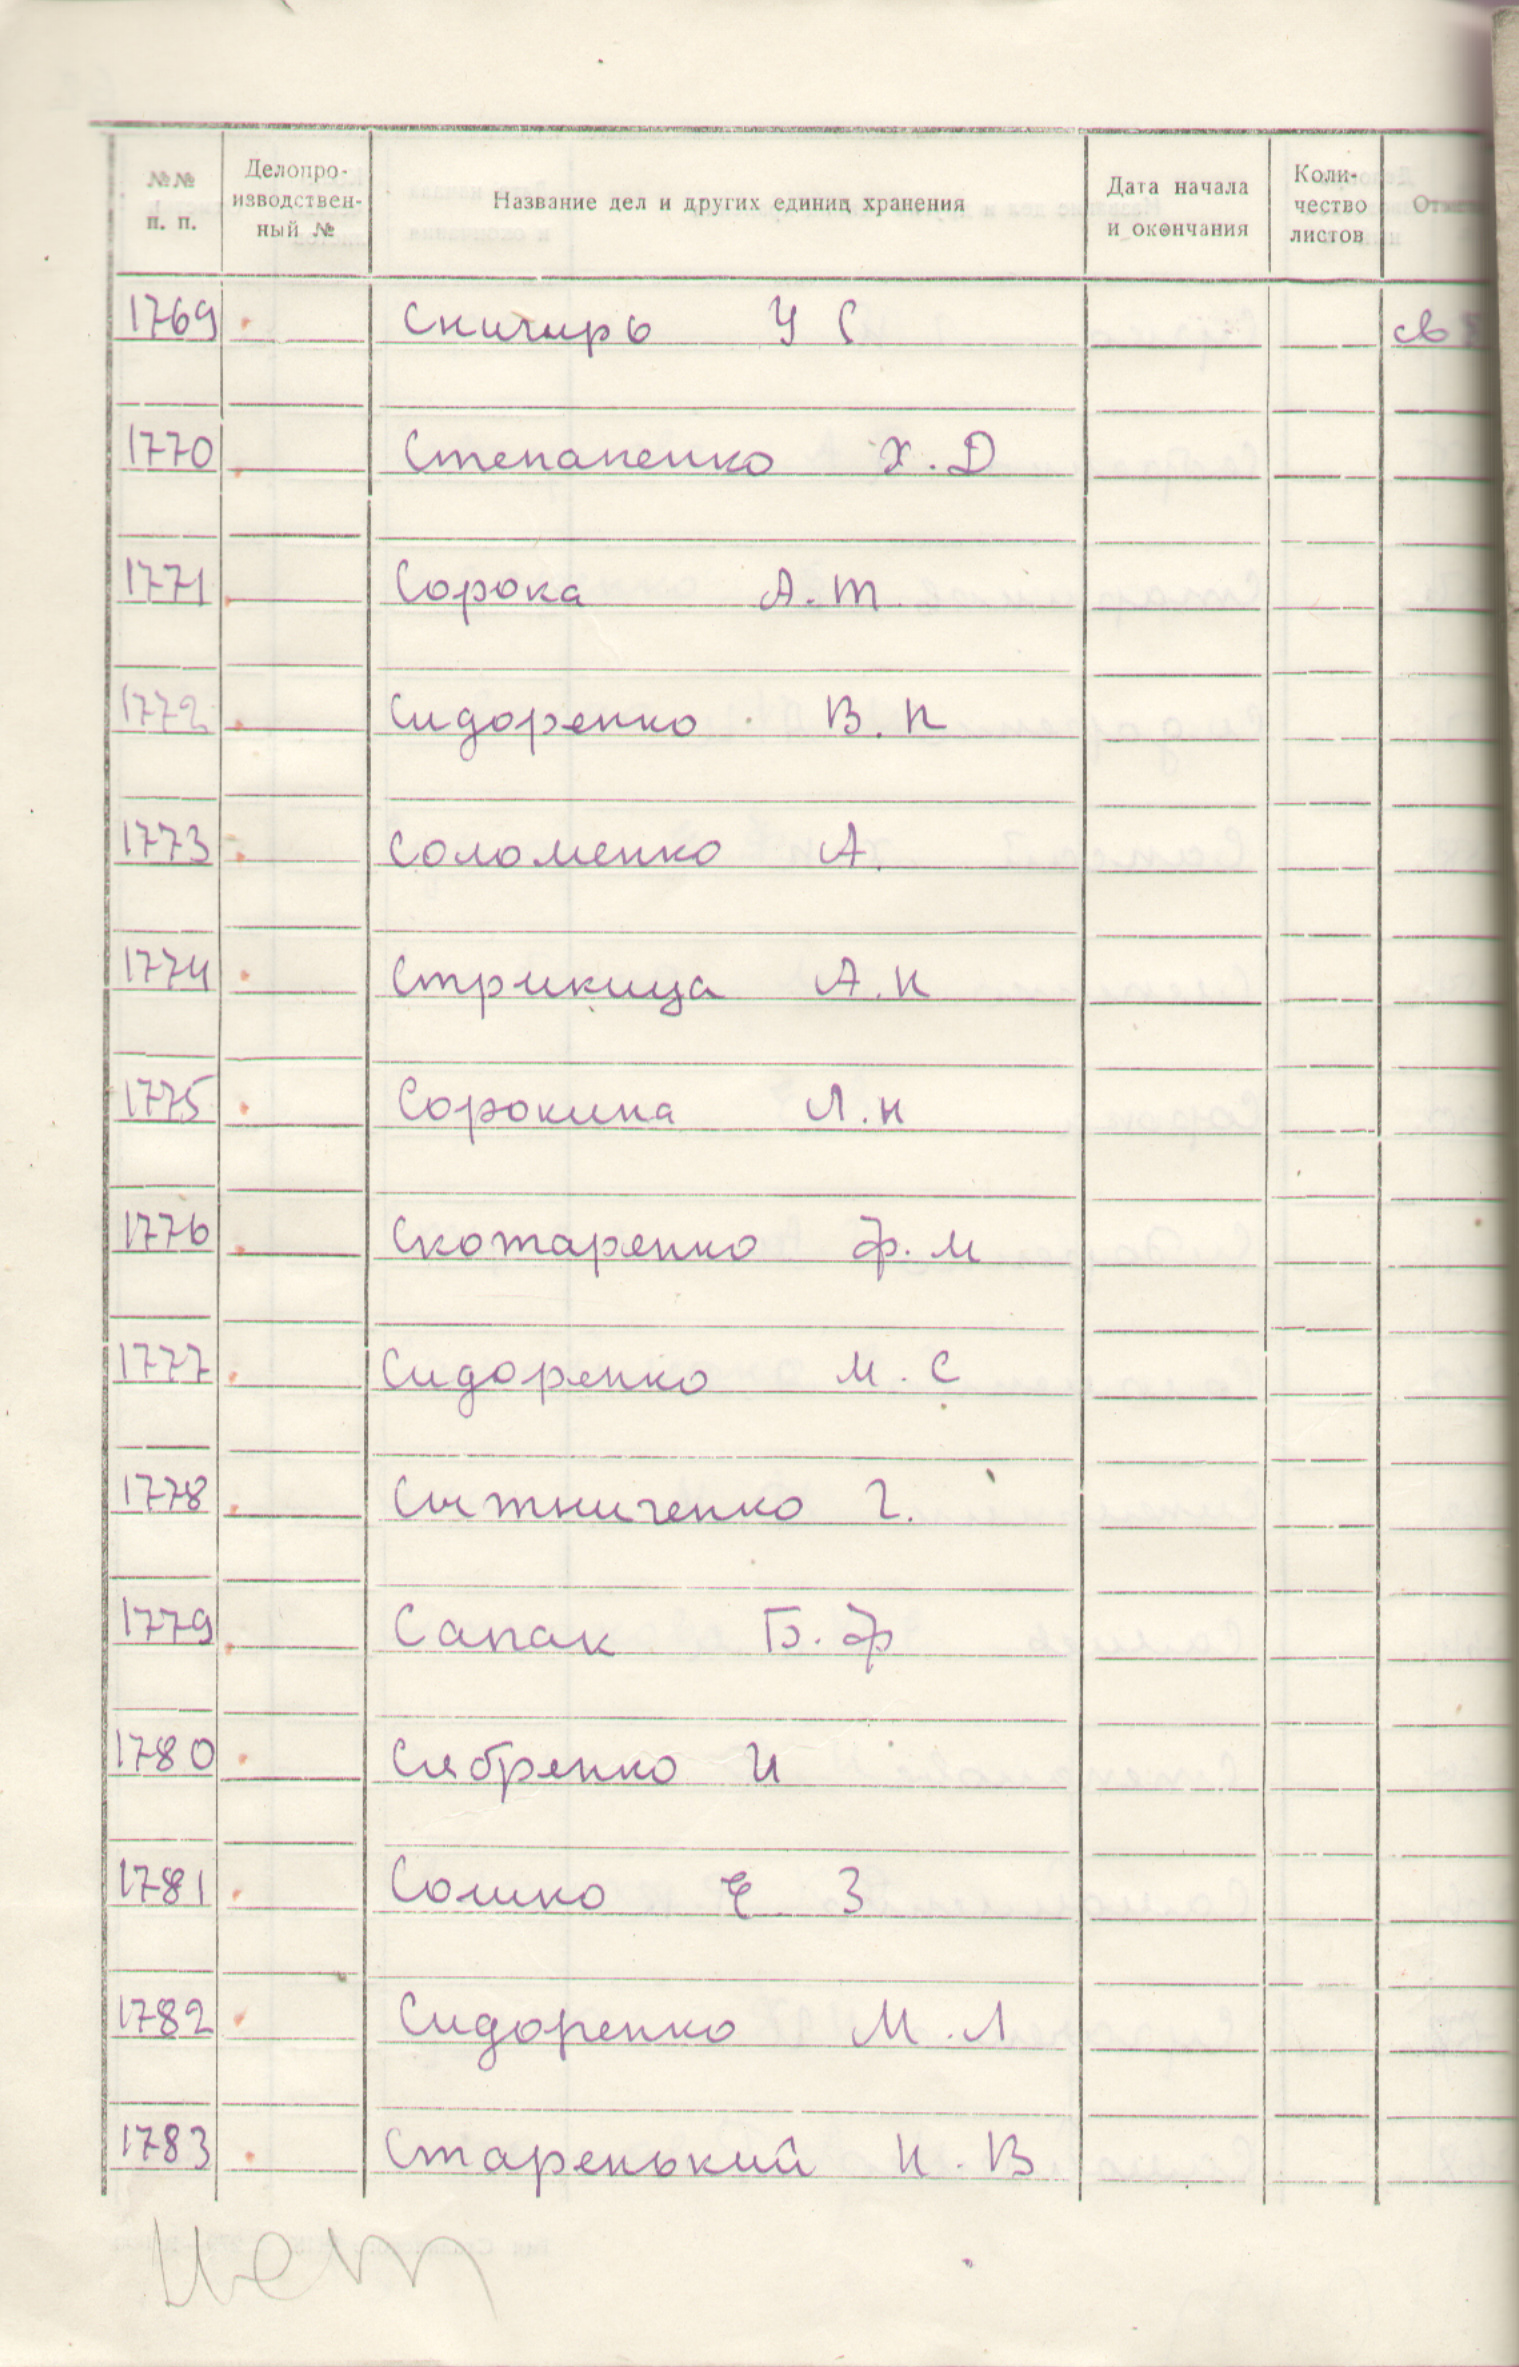 №№ п. п. Делопро-изводствен-ный № Название дел и других единиц хранения Дата начала и окончания Коли-чество листов
1769 Скичирь У С св
1770 Степаненко Х. Д
1771 Сорока А. Т.
1772 Сидоренко В. К
1773 Соломенко А.
1774 Стрикица А. К
1775 Сорокина Л. Н
1776 Скотаренко Ф. М
1777 Сидоренко М. С
1778 Сытниченко Г.
1779 Сапак Б. Ф
1780 Сябренко И
1781 Сошко Е З
1782 Сидоренко М. Л
1783 Старенький И. В
нет